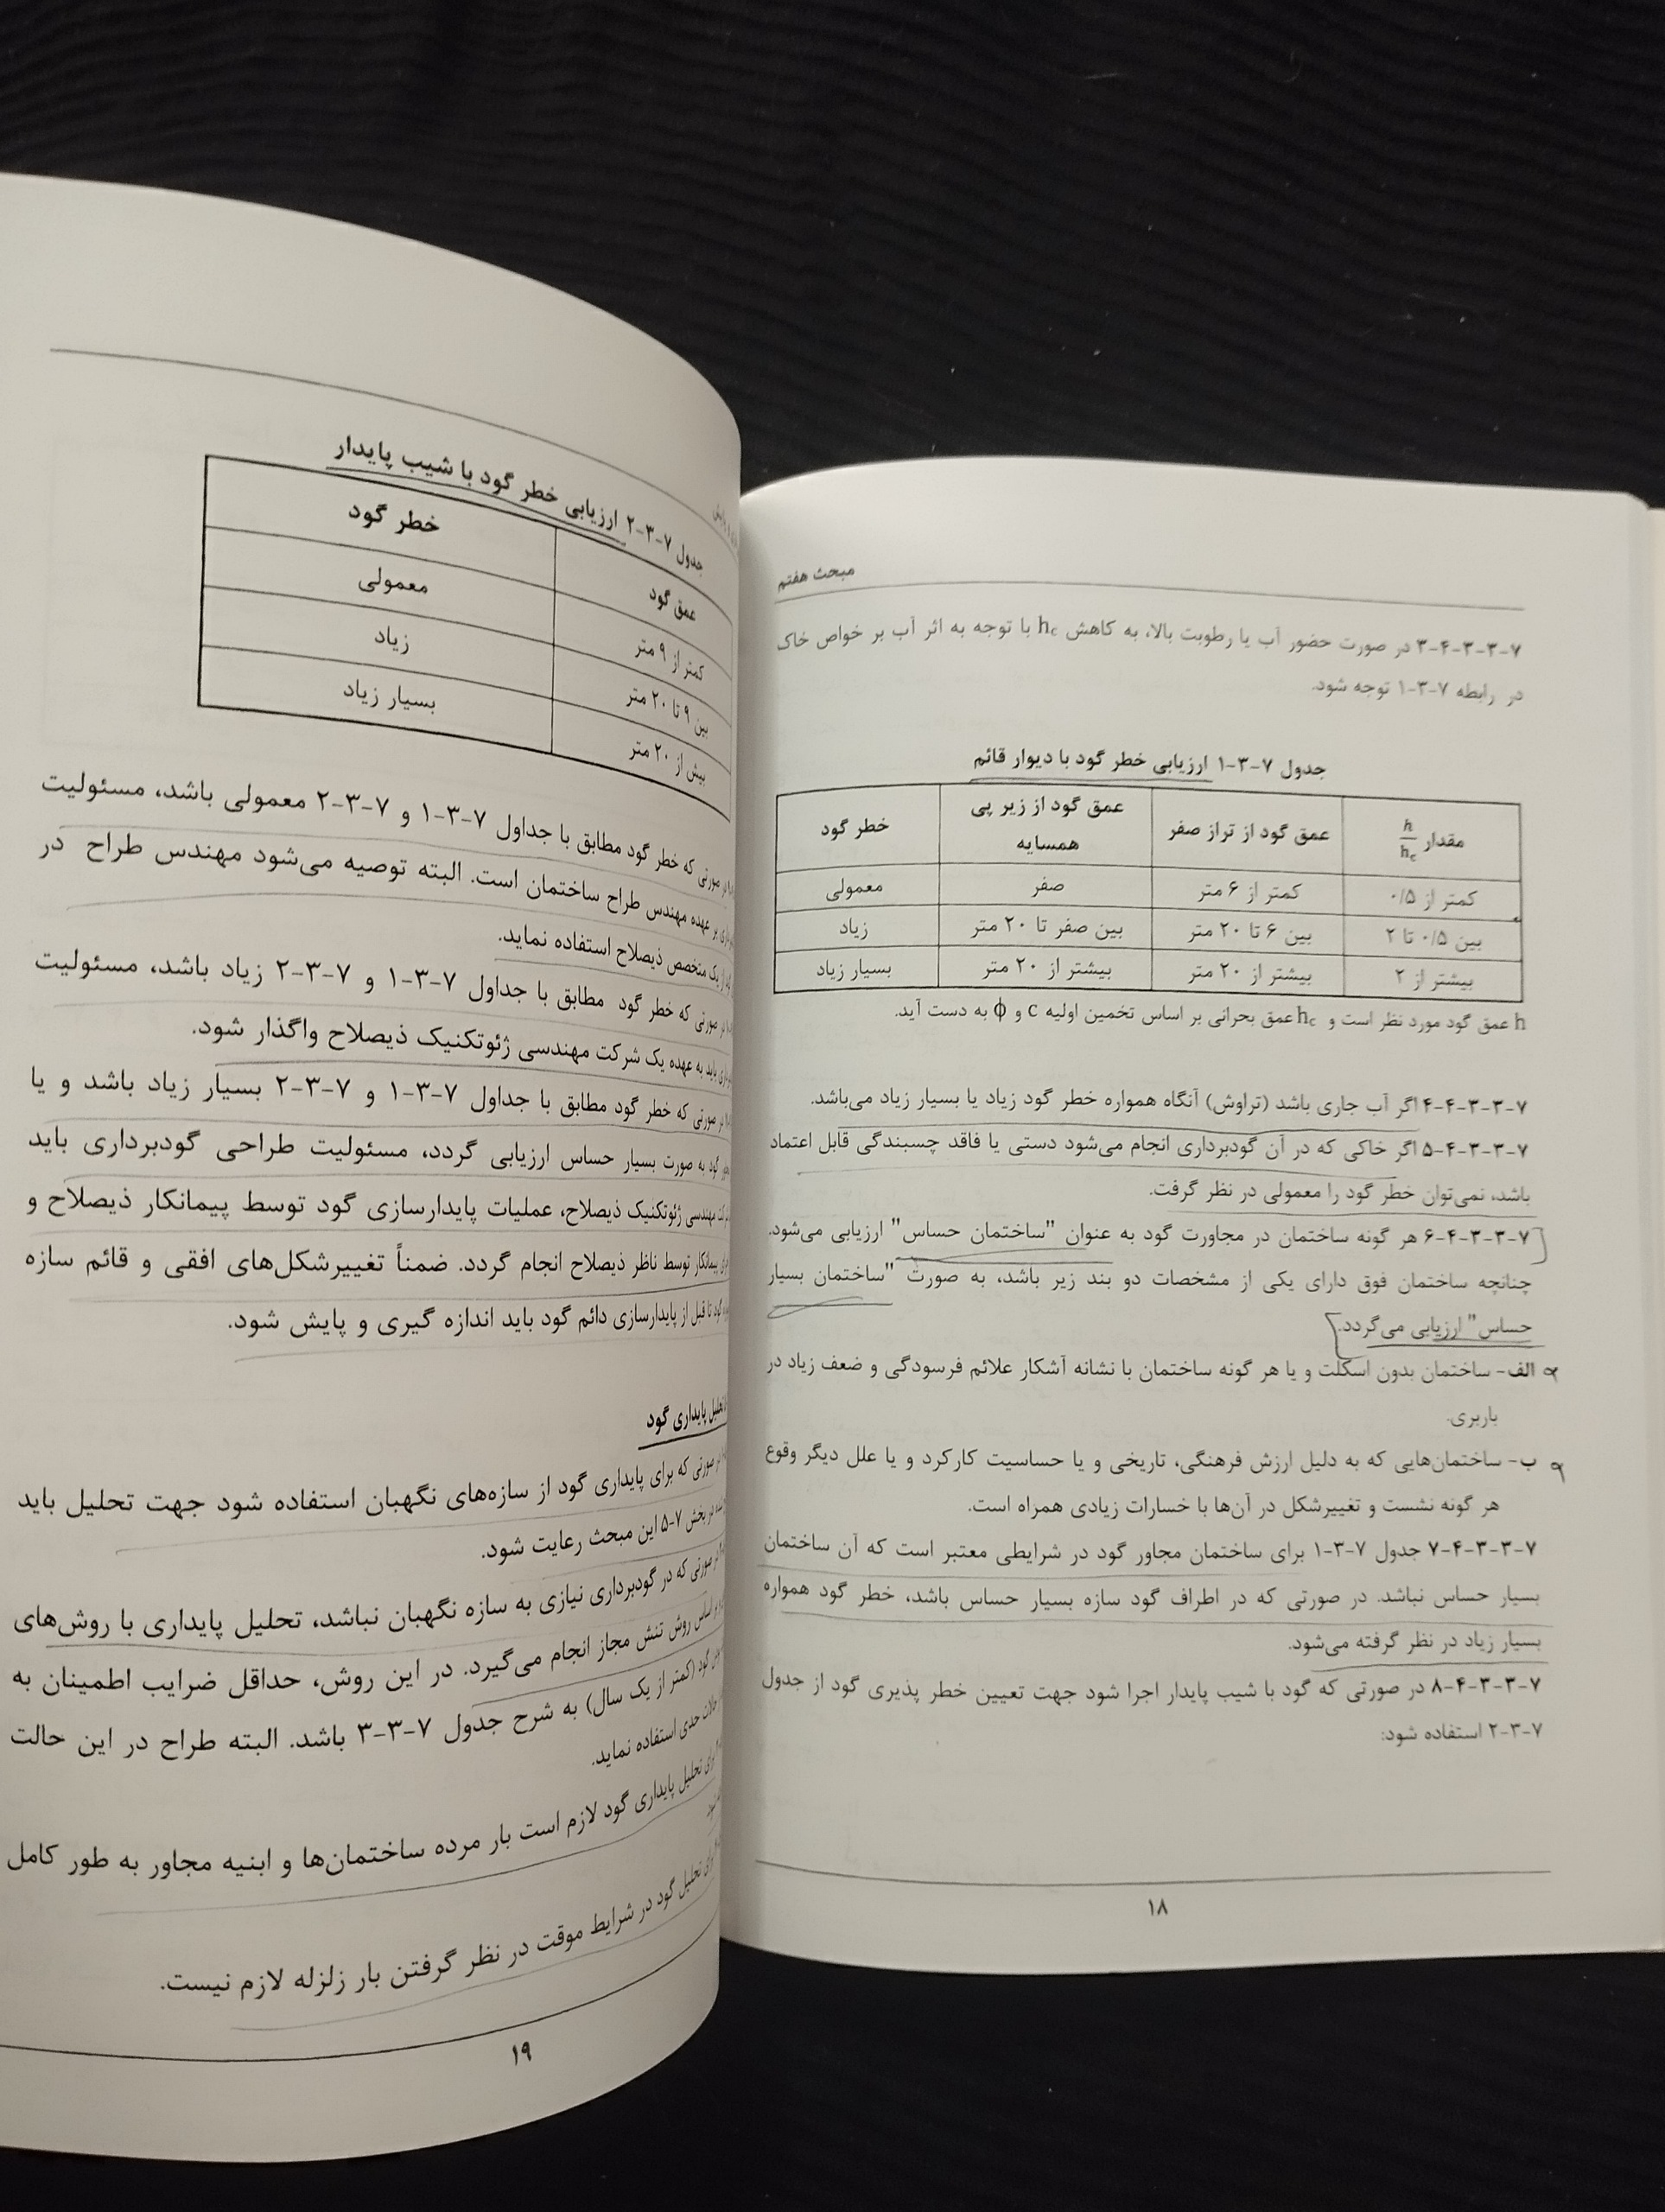 مبحث هفتم
۷-۳-۳-۴-۳ در صورت حضور آب یا رطوبت بالا، به کاهش hc با توجه به اثر آب بر خواص خاک
در رابطه ۷-۳-۱ توجه شود.
جدول ۷-۳-۱ ارزیابی خطر گود با دیوار قائم
مقدار h/hc عمق گود از تراز صفر عمق گود از زیر پی همسایه خطر گود
کمتر از ۰/۵ کمتر از ۶ متر صفر معمولی
بین ۰/۵ تا ۲ بین ۶ تا ۲۰ متر بین صفر تا ۲۰ متر زیاد
بیشتر از ۲ بیشتر از ۲۰ متر بیشتر از ۲۰ متر بسیار زیاد
h عمق گود مورد نظر است و hc عمق بحرانی بر اساس تخمین اولیه c و ϕ به دست آید.
۷-۳-۳-۴-۴ اگر آب جاری باشد (تراوش) آنگاه همواره خطر گود زیاد یا بسیار زیاد می‌باشد.
۷-۳-۳-۴-۵ اگر خاکی که در آن گودبرداری انجام می‌شود دستی یا فاقد چسبندگی قابل اعتماد
باشد، نمی‌توان خطر گود را معمولی در نظر گرفت.
۷-۳-۳-۴-۶ هر گونه ساختمان در مجاورت گود به عنوان "ساختمان حساس" ارزیابی می‌شود.
چنانچه ساختمان فوق دارای یکی از مشخصات دو بند زیر باشد، به صورت "ساختمان بسیار
حساس" ارزیابی می‌گردد.
الف- ساختمان بدون اسکلت و یا هر گونه ساختمان با نشانه آشکار علائم فرسودگی و ضعف زیاد در
باربری.
ب- ساختمان‌هایی که به دلیل ارزش فرهنگی، تاریخی و یا حساسیت کارکرد و یا علل دیگر وقوع
هر گونه نشست و تغییرشکل در آن‌ها با خسارات زیادی همراه است.
۷-۳-۳-۴-۷ جدول ۷-۳-۱ برای ساختمان مجاور گود در شرایطی معتبر است که آن ساختمان
بسیار حساس نباشد. در صورتی که در اطراف گود سازه بسیار حساس باشد، خطر گود همواره
بسیار زیاد در نظر گرفته می‌شود.
۷-۳-۳-۴-۸ در صورتی که گود با شیب پایدار اجرا شود جهت تعیین خطر پذیری گود از جدول
۷-۳-۲ استفاده شود:
۱۸
جدول ۷-۳-۲ ارزیابی خطر گود با شیب پایدار
عمق گود خطر گود
کمتر از ۹ متر معمولی
بین ۹ تا ۲۰ متر زیاد
بیش از ۲۰ متر بسیار زیاد
در صورتی که خطر گود مطابق با جداول ۷-۳-۱ و ۷-۳-۲ معمولی باشد، مسئولیت
بر عهده مهندس طراح ساختمان است. البته توصیه می‌شود مهندس طراح در
از یک متخصص ذیصلاح استفاده نماید.
در صورتی که خطر گود مطابق با جداول ۷-۳-۱ و ۷-۳-۲ زیاد باشد، مسئولیت
باید به عهده یک شرکت مهندسی ژئوتکنیک ذیصلاح واگذار شود.
در صورتی که خطر گود مطابق با جداول ۷-۳-۱ و ۷-۳-۲ بسیار زیاد باشد و یا
گود به صورت بسیار حساس ارزیابی گردد، مسئولیت طراحی گودبرداری باید
مهندسی ژئوتکنیک ذیصلاح، عملیات پایدارسازی گود توسط پیمانکار ذیصلاح و
پیمانکار توسط ناظر ذیصلاح انجام گردد. ضمناً تغییرشکل‌های افقی و قائم سازه
گود تا قبل از پایدارسازی دائم گود باید اندازه گیری و پایش شود.
تحلیل پایداری گود
در صورتی که برای پایداری گود از سازه‌های نگهبان استفاده شود جهت تحلیل باید
در بخش ۷-۵ این مبحث رعایت شود.
در صورتی که در گودبرداری نیازی به سازه نگهبان نباشد، تحلیل پایداری با روش‌های
بر اساس روش تنش مجاز انجام می‌گیرد. در این روش، حداقل ضرایب اطمینان به
گود (کمتر از یک سال) به شرح جدول ۷-۳-۳ باشد. البته طراح در این حالت
حالات حدی استفاده نماید.
برای تحلیل پایداری گود لازم است بار مرده ساختمان‌ها و ابنیه مجاور به طور کامل
شود.
برای تحلیل گود در شرایط موقت در نظر گرفتن بار زلزله لازم نیست.
۱۹